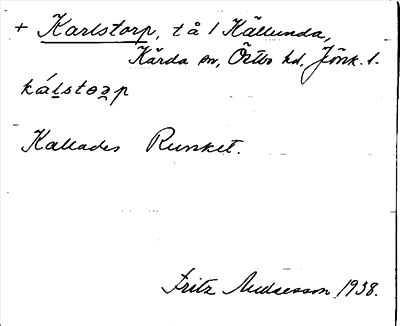 + Karlstorp, t å 1 Källunda,
Kärda sn, Östbo hd, Jönk. l.
kálstorp
Kallades Runket.
Fritz Andersson 1938.